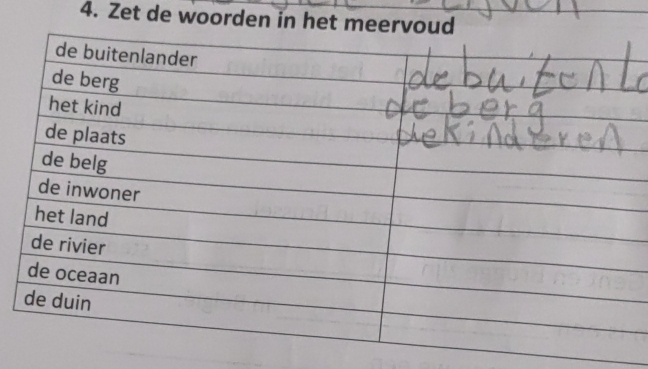 4. Zet de woorden in het meervoud
de buitenlander
de berg de berg
het kind de kinderen
de plaats
de belg
de inwoner
het land
de rivier
de oceaan
de duin